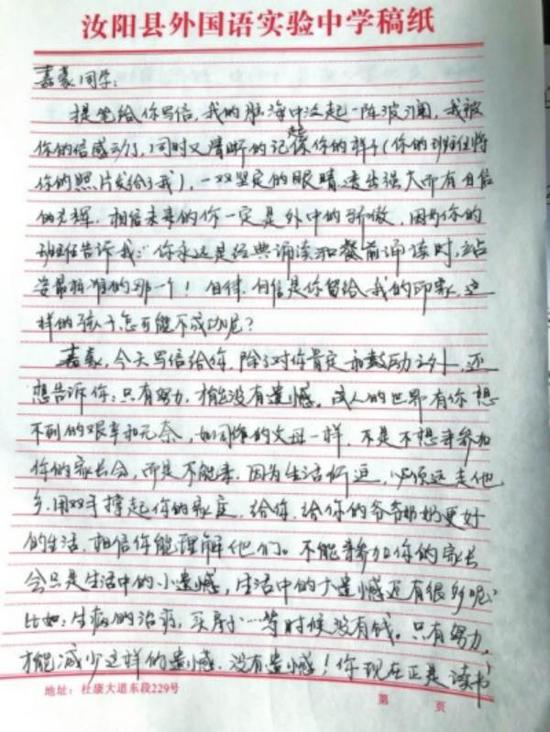 汝阳县外国语实验中学稿纸
嘉豪同学:
提笔给你写信,我的脑海中泛起一阵波澜,我被
你的信感动了,同时又清晰的记起你的样子(你的班主任将
你的照片发给了我),一双坚定的眼睛透出强大而有自信
的光辉,相信未来的你一定是外中的骄傲,因为你的
班主任告诉我:"你永远是经典诵读和餐前诵读时,站
姿最标准的那一个!自律、自信是你留给我的印象,这
样的孩子怎可能不成功呢?
嘉豪,今天写信给你,除了对你肯定和鼓励之外,还
想告诉你:只有努力,才能没有遗憾,成人的世界有你想
不到的艰辛和无奈,如同你的父母一样,不是不想来参加
你的家长会,而是不能来,因为生活所迫,必须远走他
乡,用双手撑起你的家庭,给你,给你的爷爷奶奶更好
的生活,相信你能理解他们。不能来参加你的家长
会只是生活中的小遗憾,生活中的大遗憾还有很多呢,
比如:生病的治病,买房子……等时候没有钱。只有努力,
才能减少这样的遗憾,没有遗憾!你现在正是读书
地址:杜康大道东段229号
第 页